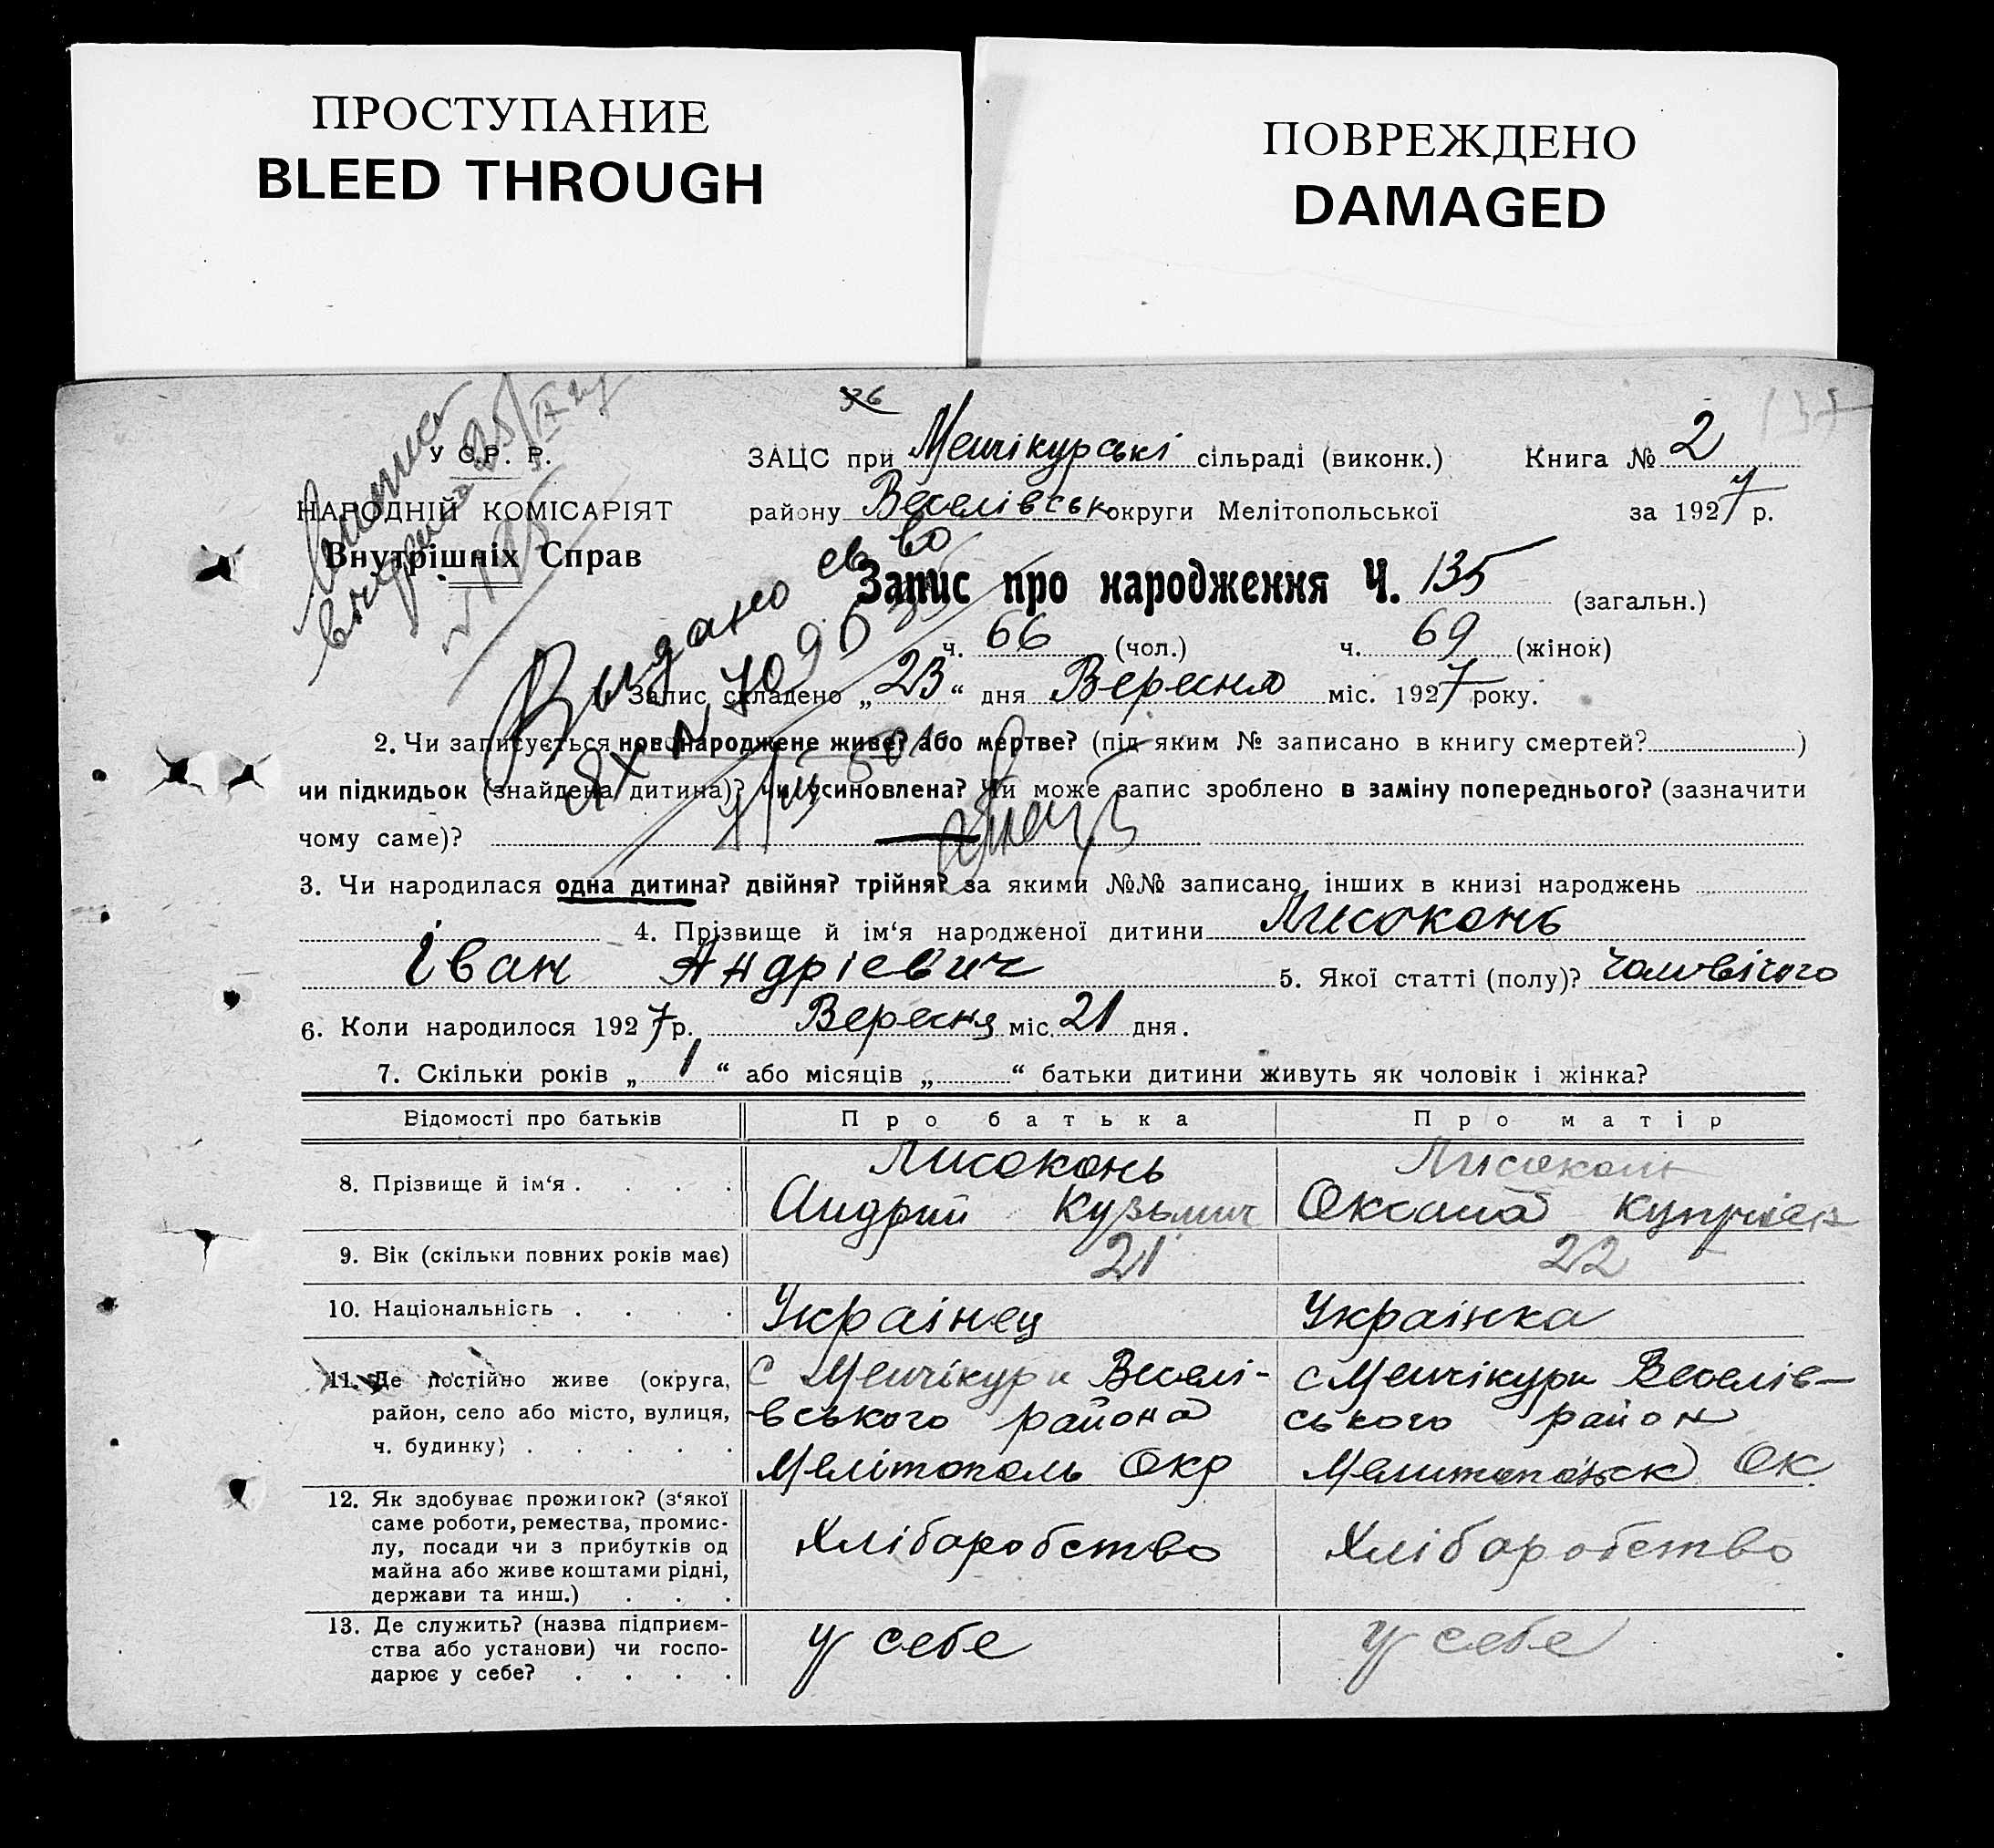 ПРОСТУПАНИЕ
BLEED THROUGH
ПОВРЕЖДЕНО
DAMAGED
36
У С.Р. Р.
НАРОДНІЙ КОМІСАРІЯТ
Внутрішніх Справ
ЗАЦС при Менчікурські сільраді (виконк.) Книга № 2
району Веселівськ округи Мелітопольської за 1927 р.
Видано св во
Запис про народження Ч. 135 (загальн.)
ч. 66 (чол.) ч. 69 (жінок)
1. Запис складено „23“ дня Вересня міс. 1927 року.
2. Чи записується новонароджене живе? або мертве? (під яким № записано в книгу смертей? )
чи підкидьок (знайдена дитина)? чи усиновлена? Чи може запис зроблено в заміну попереднього? (зазначити
чому саме)? —
3. Чи народилася одна дитина? двійня? трійня? за якими №№ записано інших в книзі народжень
4. Прізвище й ім‘я народженої дитини Лисоконь
Іван Андрієвич 5. Якої статті (полу)? Чоловічого
6. Коли народилося 1927 р. Вересня міс. 21 дня.
7. Скільки років „ 1 “ або місяців „ “ батьки дитини живуть як чоловік і жінка?
Відомості про батьків Про батька Про матір
8. Прізвище й ім‘я . . . . Лисоконь Лисоконь
Андрий Кузьмич Оксана Купріев
9. Вік (скільки повних років має) 21 22
10. Національність . . . . Украінец Украінка
11. Де постійно живе (округа, С Менчікури Веселі- С Менчікури Веселів-
район, село або місто, вулиця, вського района ського район
ч. будинку) . . . . . Мелітополь Окр Мелитопольск Ок
12. Як здобуває прожиток? (з‘якої
саме роботи, ремества, промис-
лу, посади чи з прибутків од Хліборобство Хліборобство
майна або живе коштами рідні,
держави та инш.) . . .
13. Де служить? (назва підприєм-
ства або установи) чи госпо- у себе у себе
дарює у себе? . . . .